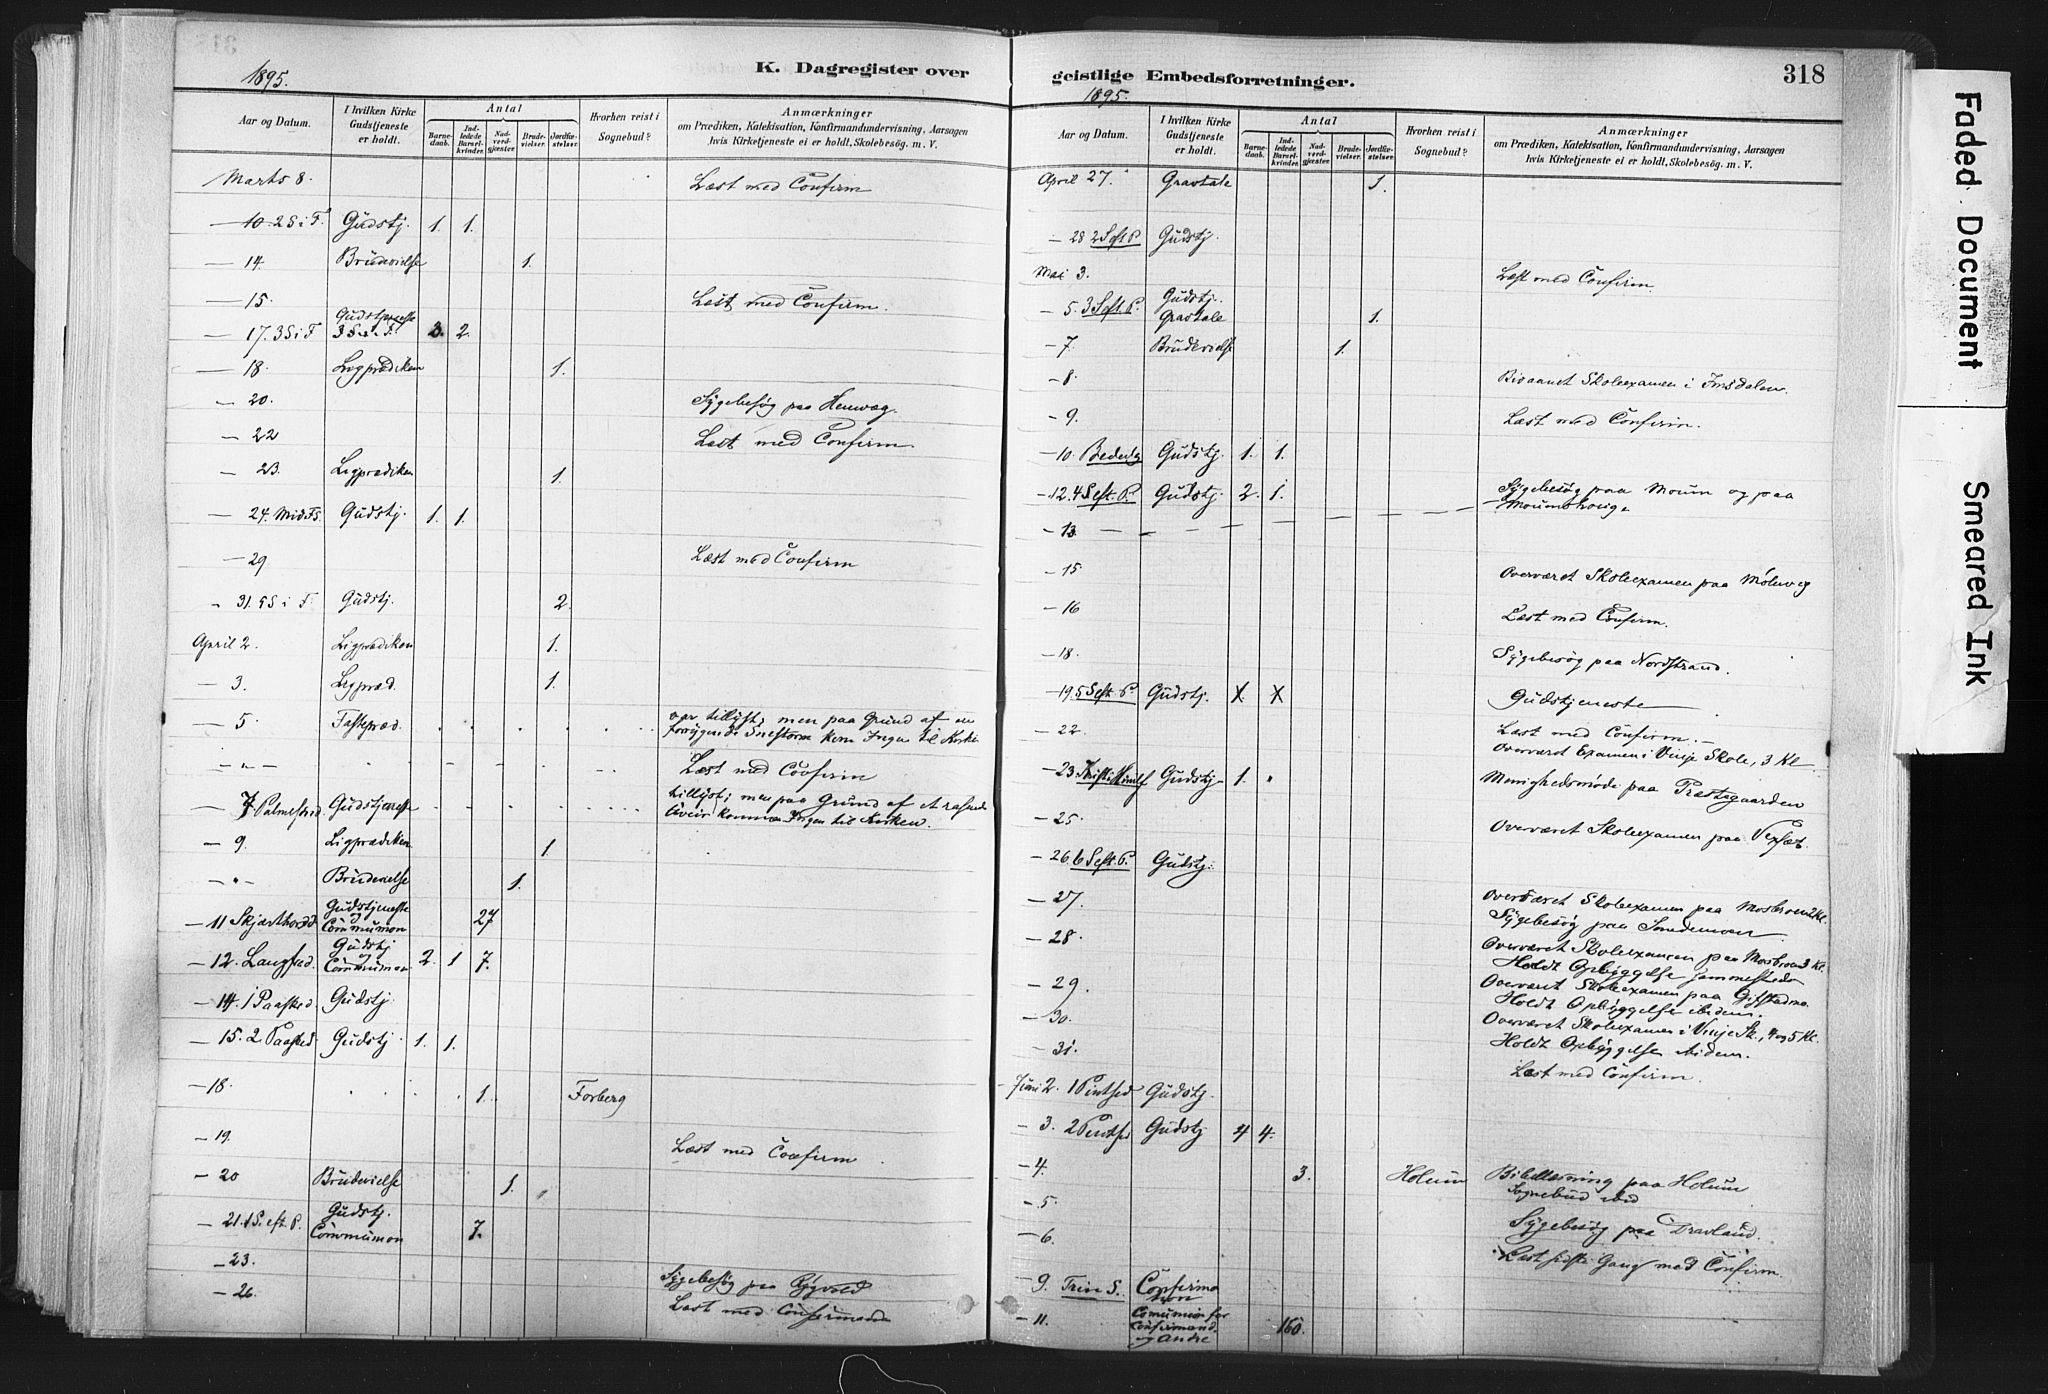 K. Dagregister over
1895.
Aar og Datum.
I hvilken Kirke Gudstjeneste er holdt.
Antal
Barnedaab.
Indledede Barselkvinder.
Nadverdgjæster
Brudevielser.
Jordfæstelser
Hvorhen reist i Sognebud?
Anmærkninger
om Prædiken, Katekisation, Konfirmandundervisning, Aarsagen
hvis Kirketjeneste ei er holdt, Skolebesøg. m. V.
Marts 8. Læst med Confirm
— 10. 2 S i F. Gudstj. 1. 1.
— 14. Brudevielse 1.
— 15. Læst med Confirm.
— 17. 3 S i F Gudstjeneste 3 S i F. 3. 2.
— 18. Ligprædiken 1.
— 20. Sygebesøg paa
— 22 Læst med Confirm.
— 23. Ligprædiken 1.
— 24. Mid Fs. Gudstj. 1. 1.
— 29 Læst med Confirm
" 31. 5 S i F. Gudstj. 2.
April 2. Ligprædiken 1.
— 3. Ligpræd. 1.
— 5. Fastepræd. var tillyst; men paa Grund af en
forrygende Snestorm kom Ingen til Kirke
— " — Læst med Confirm
— 7 Palmesønd. Gudstjeneste tillyst; men paa Grund af et rasende
Uveir kommen Ingen til Kirken.
— 9. Ligprædiken 1.
— " — Brudevielse 1.
— 11 Skjærthorsd. Gudstjeneste og Communion 27
— 12. Langfred. Gudstj og Communion 2. 1 7.
— 14. 1 Paasked. Gudstj.
— 15. 2 Paasked Gudstj. 1. 1.
— 18. 1. Forberg
— 19. Læst med Confirm
— 20 Brudevielse 1.
— 21. 1 S. eft. P. Gudstj. Communion 7.
— 23. Sygebesøg paa
— 26. Læst med Confirmande
geistlige Embedsforretninger.
318
1895.
Aar og Datum.
I hvilken Kirke Gudstjeneste er holdt.
Antal
Barnedaab.
Indledede Barselkvinder.
Nadverdgjæster
Brudevielser.
Jordfæstelser
Hvorhen reist i Sognebud?
Anmærkninger
om Prædiken, Katekisation, Konfirmandundervisning, Aarsagen
hvis Kirketjeneste ei er holdt, Skolebesøg. m. V.
April 27. Gravtale 1.
— 28 2 S eft P. Gudstj.
Mai 3. Læst med Confirm.
— 5. 3 S eft. P. Gudstj. Gravtale 1.
— 7. Brudevielse 1.
— 8. Bivaanet Skoleexamen i
— 9. Læst med Confirm.
— 10. Bededag Gudstj. 1. 1.
— 12. 4 S eft. P. Gudstj. 2. 1. Sygebesøg paa Moum og paa
— 13. — — — — — — — —
— 15 Overværet Skoleexamen paa
— 16 Læst med Confirm.
— 18. Sygebesøg paa Nordstrand.
— 19. 5 S eft. P. Gudstj. X. X Gudstjeneste
— 22. Læst med Confirm. —
Overværet Examen i Vinje Skole, 3 Kl
— 23. Kristi Himlf Gudstj. 1. " Menighedsmøde paa Præstegaarden
— 25. Overværet Skoleexamen paa
— 26. 6 S eft. P. Gudstj.
— 27. Overværet Skoleexamen paa Mosbroen 2 Kl.
Sygebesøg paa
— 28. Overværet Skoleexamen paa Mosbroen 3 Kl.
Holdt Opbyggelse sammesteds
— 29. Overværet Skoleexamen paa
— 30. Holdt Opbyggelse ibidem.
Overværet Skoleexamen i Vinje Sk., 4 og 5 Kl.
— 31. Holdt Opbyggelse ibidem.
Læst med Confirm.
Juni 2. 1 Pintsed Gudstj.
— 3. 2 Pintsed Gudstj 4 4.
— 4. 3. Holum Bibellæsning paa Holum
Sognebud ibid
— 5.
Sygebesøg paa
— 6. Læst sidste Gang med Confirm.
— 9. Trin S. Confirmation
— 11. Comunion for Confirmand. og Andre 160.
Faded Document
Smeared Ink